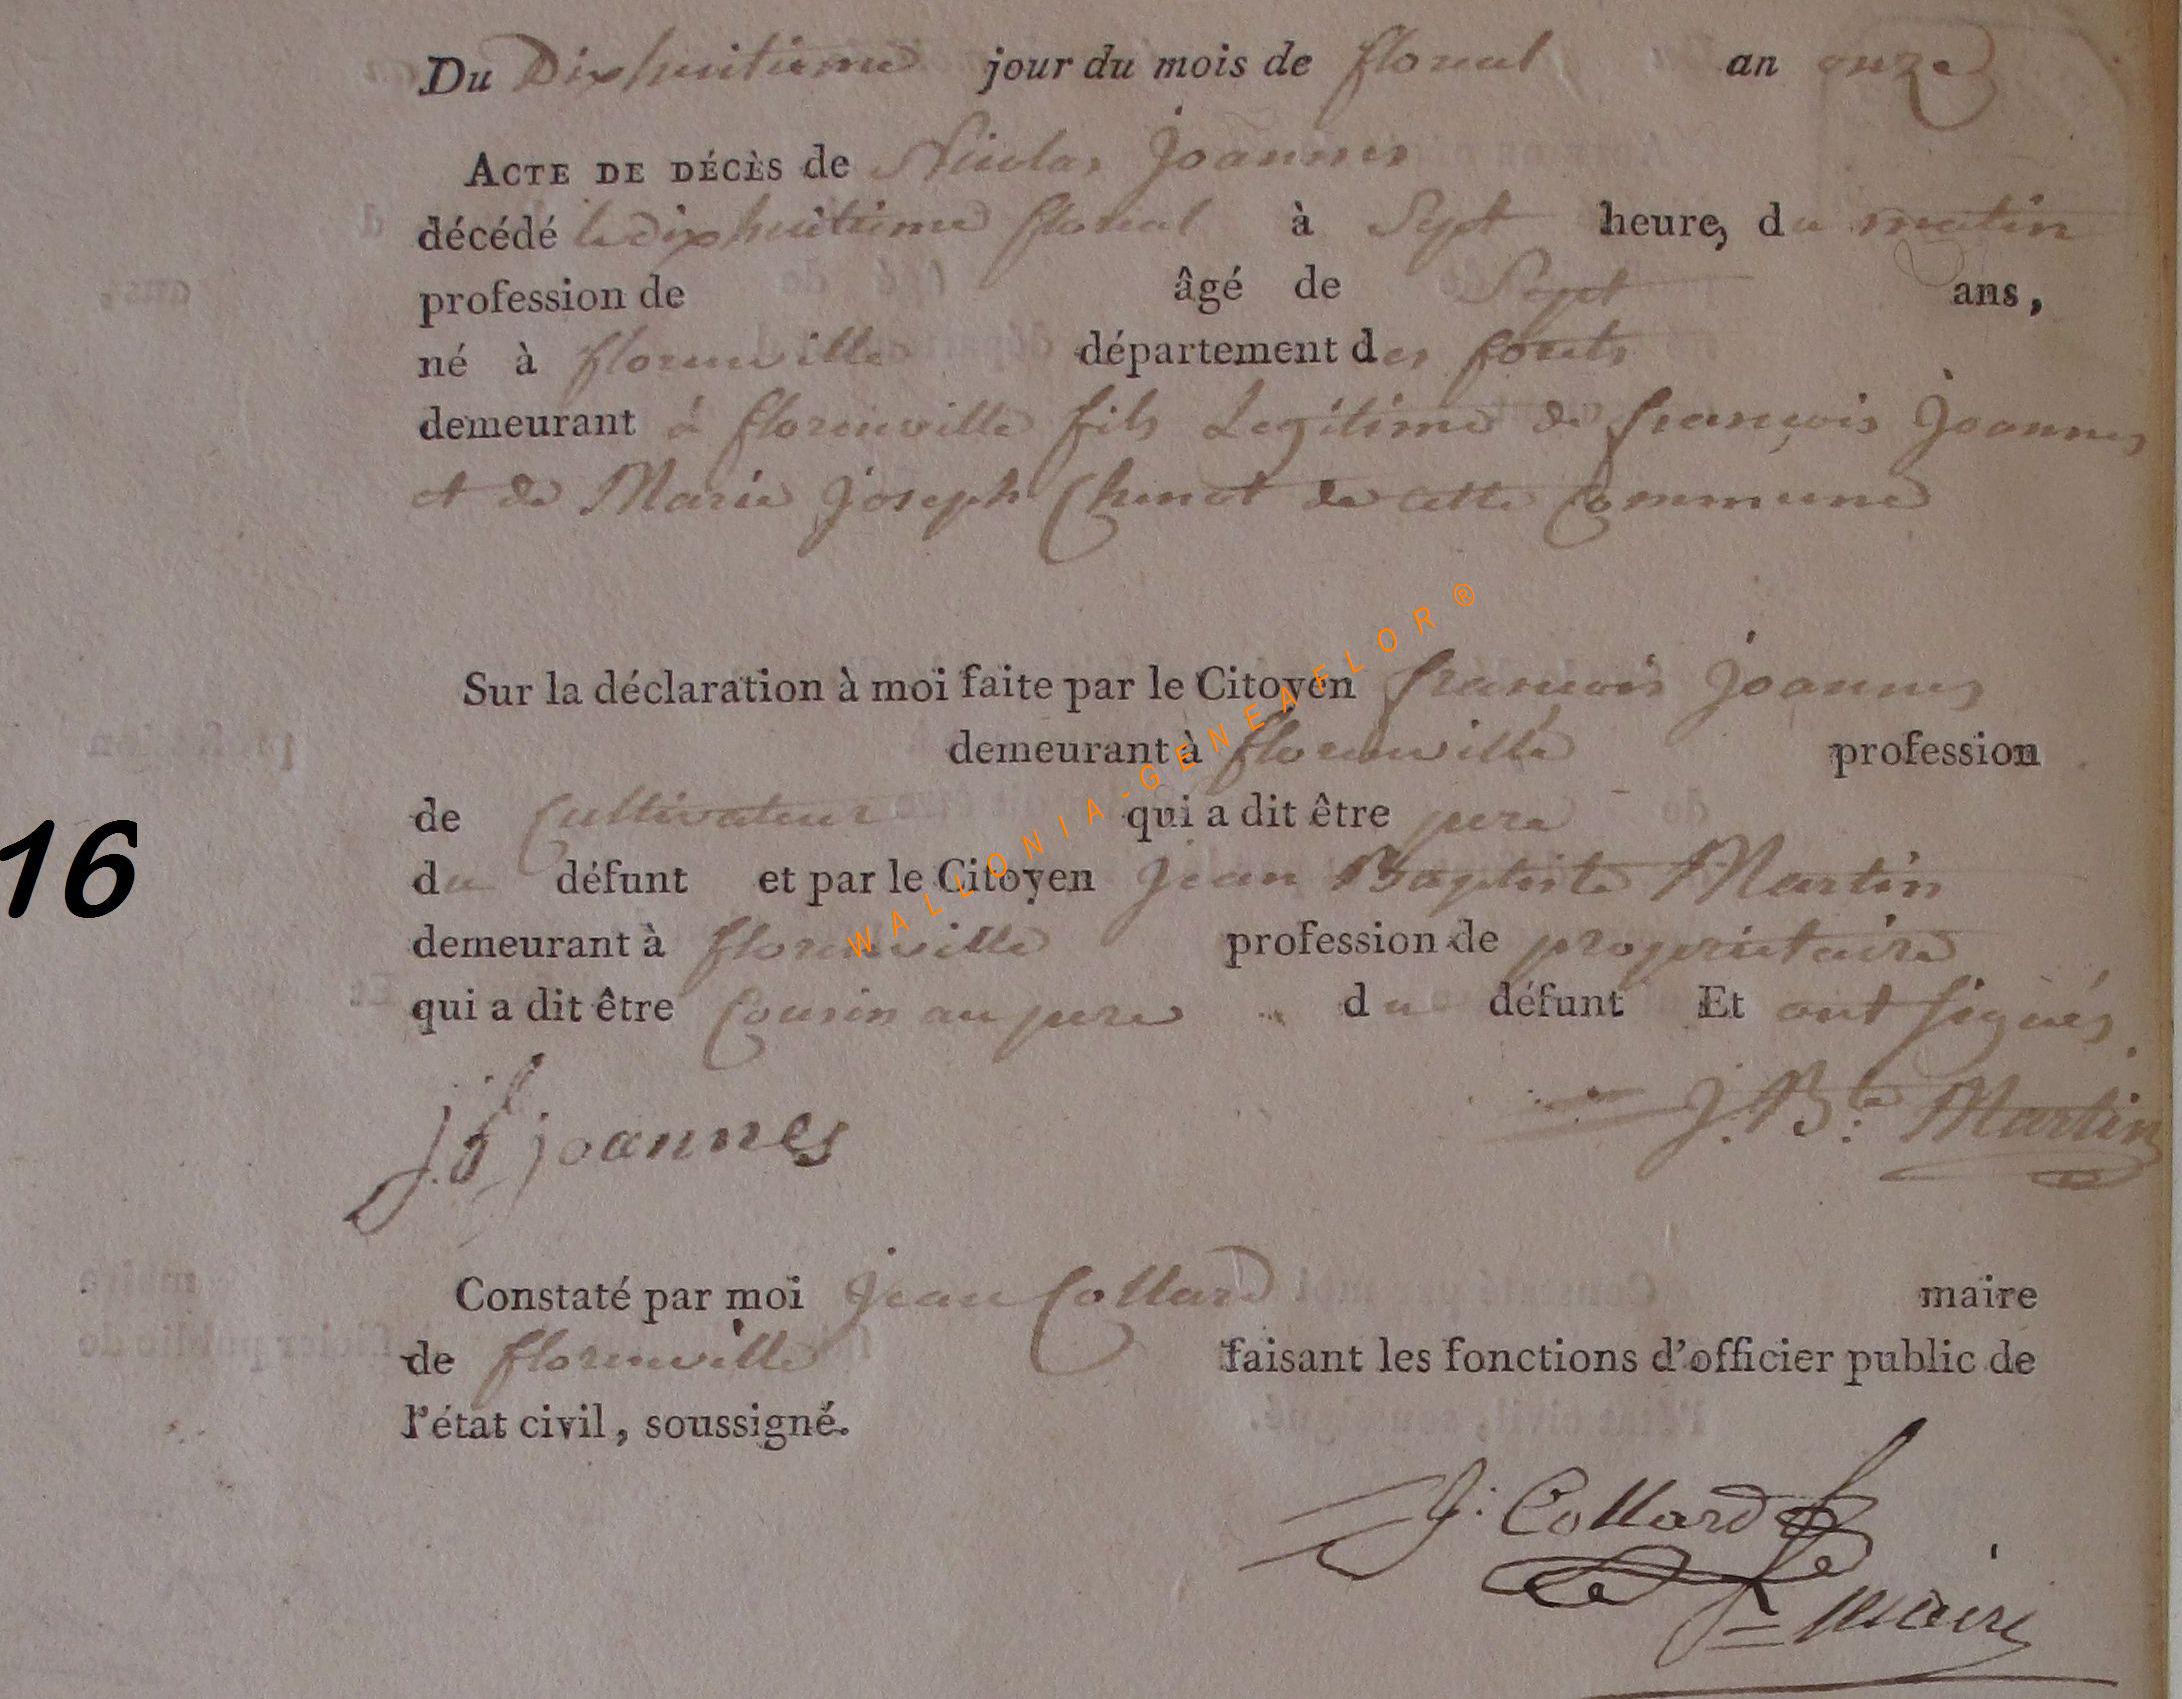 Du Dixhuitieme jour du mois de floreal an onze
ACTE DE DÉCÈS de Nicolas Joannes
décédé le dixhuitieme floreal à Sept heure, du matin
profession de âgé de Sept ans,
né à florenville département des forets
demeurant à florenville fils Legitime de françois Joannes
et de Marie Joseph Chenot de cette Commune
Sur la déclaration à moi faite par le Citoyen francois Joannes
demeurant à florenville profession
de Cultivateur qui a dit être pere
du défunt et par le Citoyen Jean Baptiste Martin
demeurant à florenville profession de proprietaire
qui a dit être Cousin au pere du défunt Et ont signés
joannes
J. Bte: Martin
16
Constaté par moi Jean Collard maire
de florenville faisant les fonctions d'officier public de
l'état civil, soussigné.
J: Collard
maire
WALLONIA-GENEAFLOR®